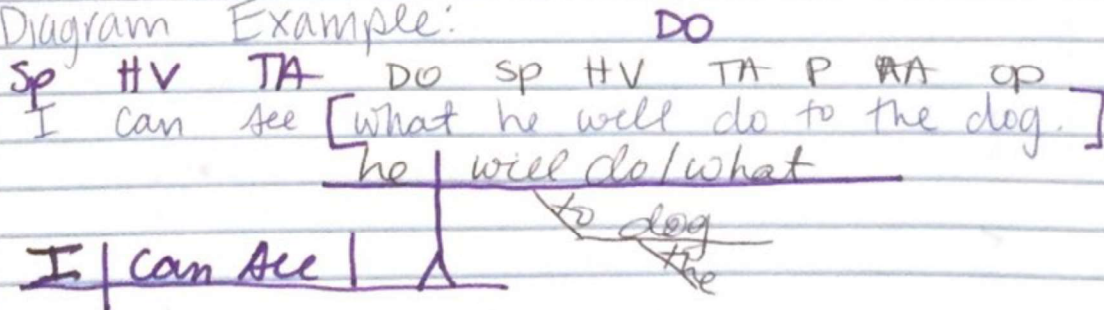 Diagram Example: DO
Sp HV TA DO SP HV TA P AA OP
I can see [what he will do to the dog.]
he | will do / what
to dog
the
I | can see |